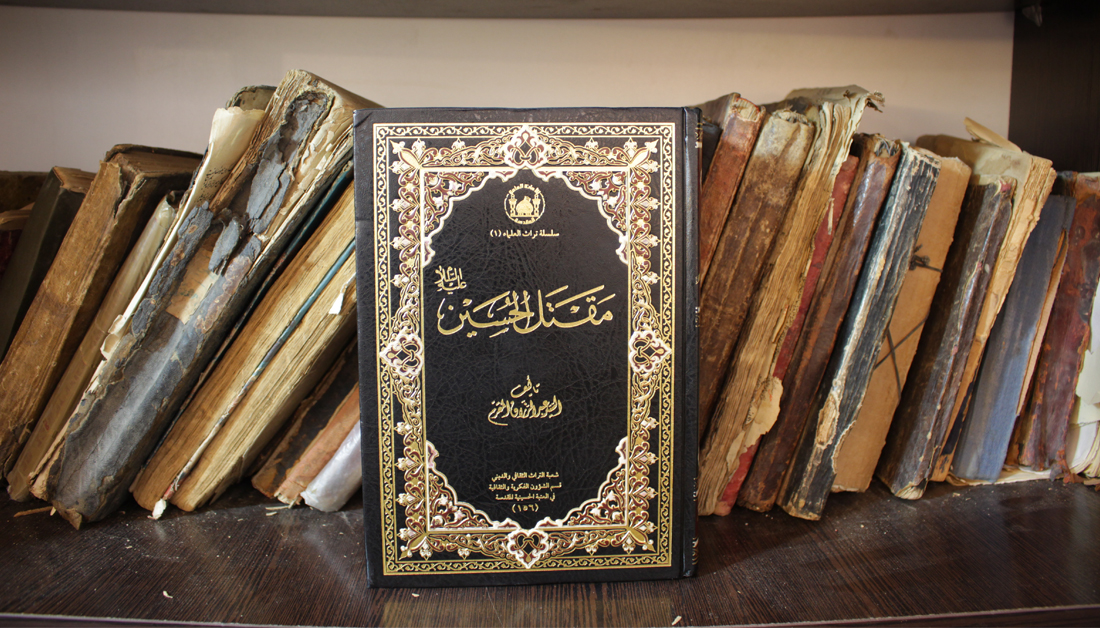 سلسلة تراث العلماء (١)
مَقْتَل الحُسَيْن
عليه السلام
تأليف
السيد عبد الرزاق المقرم
شعبة التراث الثقافي والديني
قسم الشؤون الفكرية والثقافية
في العتبة الحسينية المقدسة
(١٥٦)